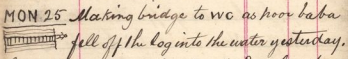 MON 25 Making bridge to WC as poor baba
fell off the log into the water yesterday.